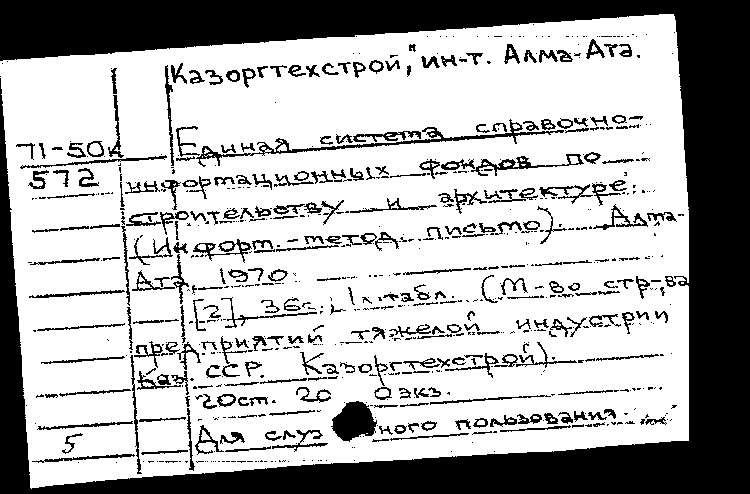 "Казоргтехстрой," ин-т. Алма-Ата.
71-50к Единая система справочно-
572 информационных фондов по
строительству и архитектуре.
(Информ.-метод. письмо). Алма-
Ата, 1970.
[2], 36с.; 1л.табл. (М-во стр-ва
предприятий тяжелой индустрии
Каз. ССР. Казоргтехстрой).
20ст. 20 0экз.
5 Для служ ного пользования.